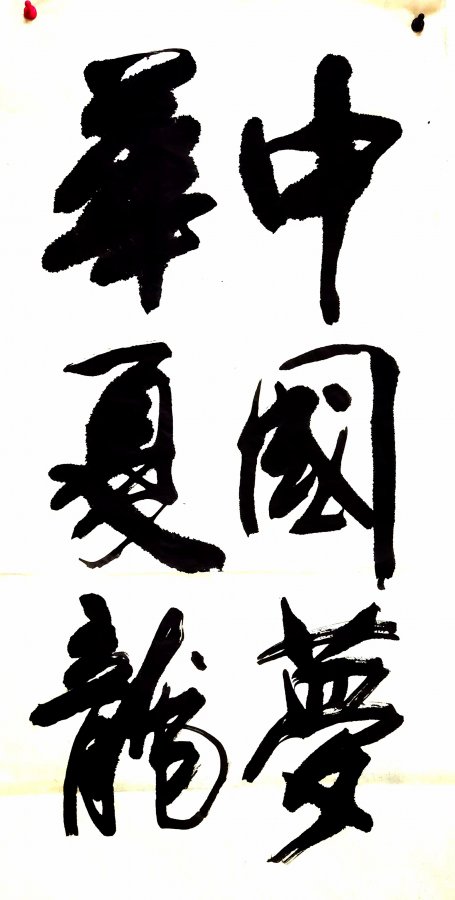 中國夢
華夏龍